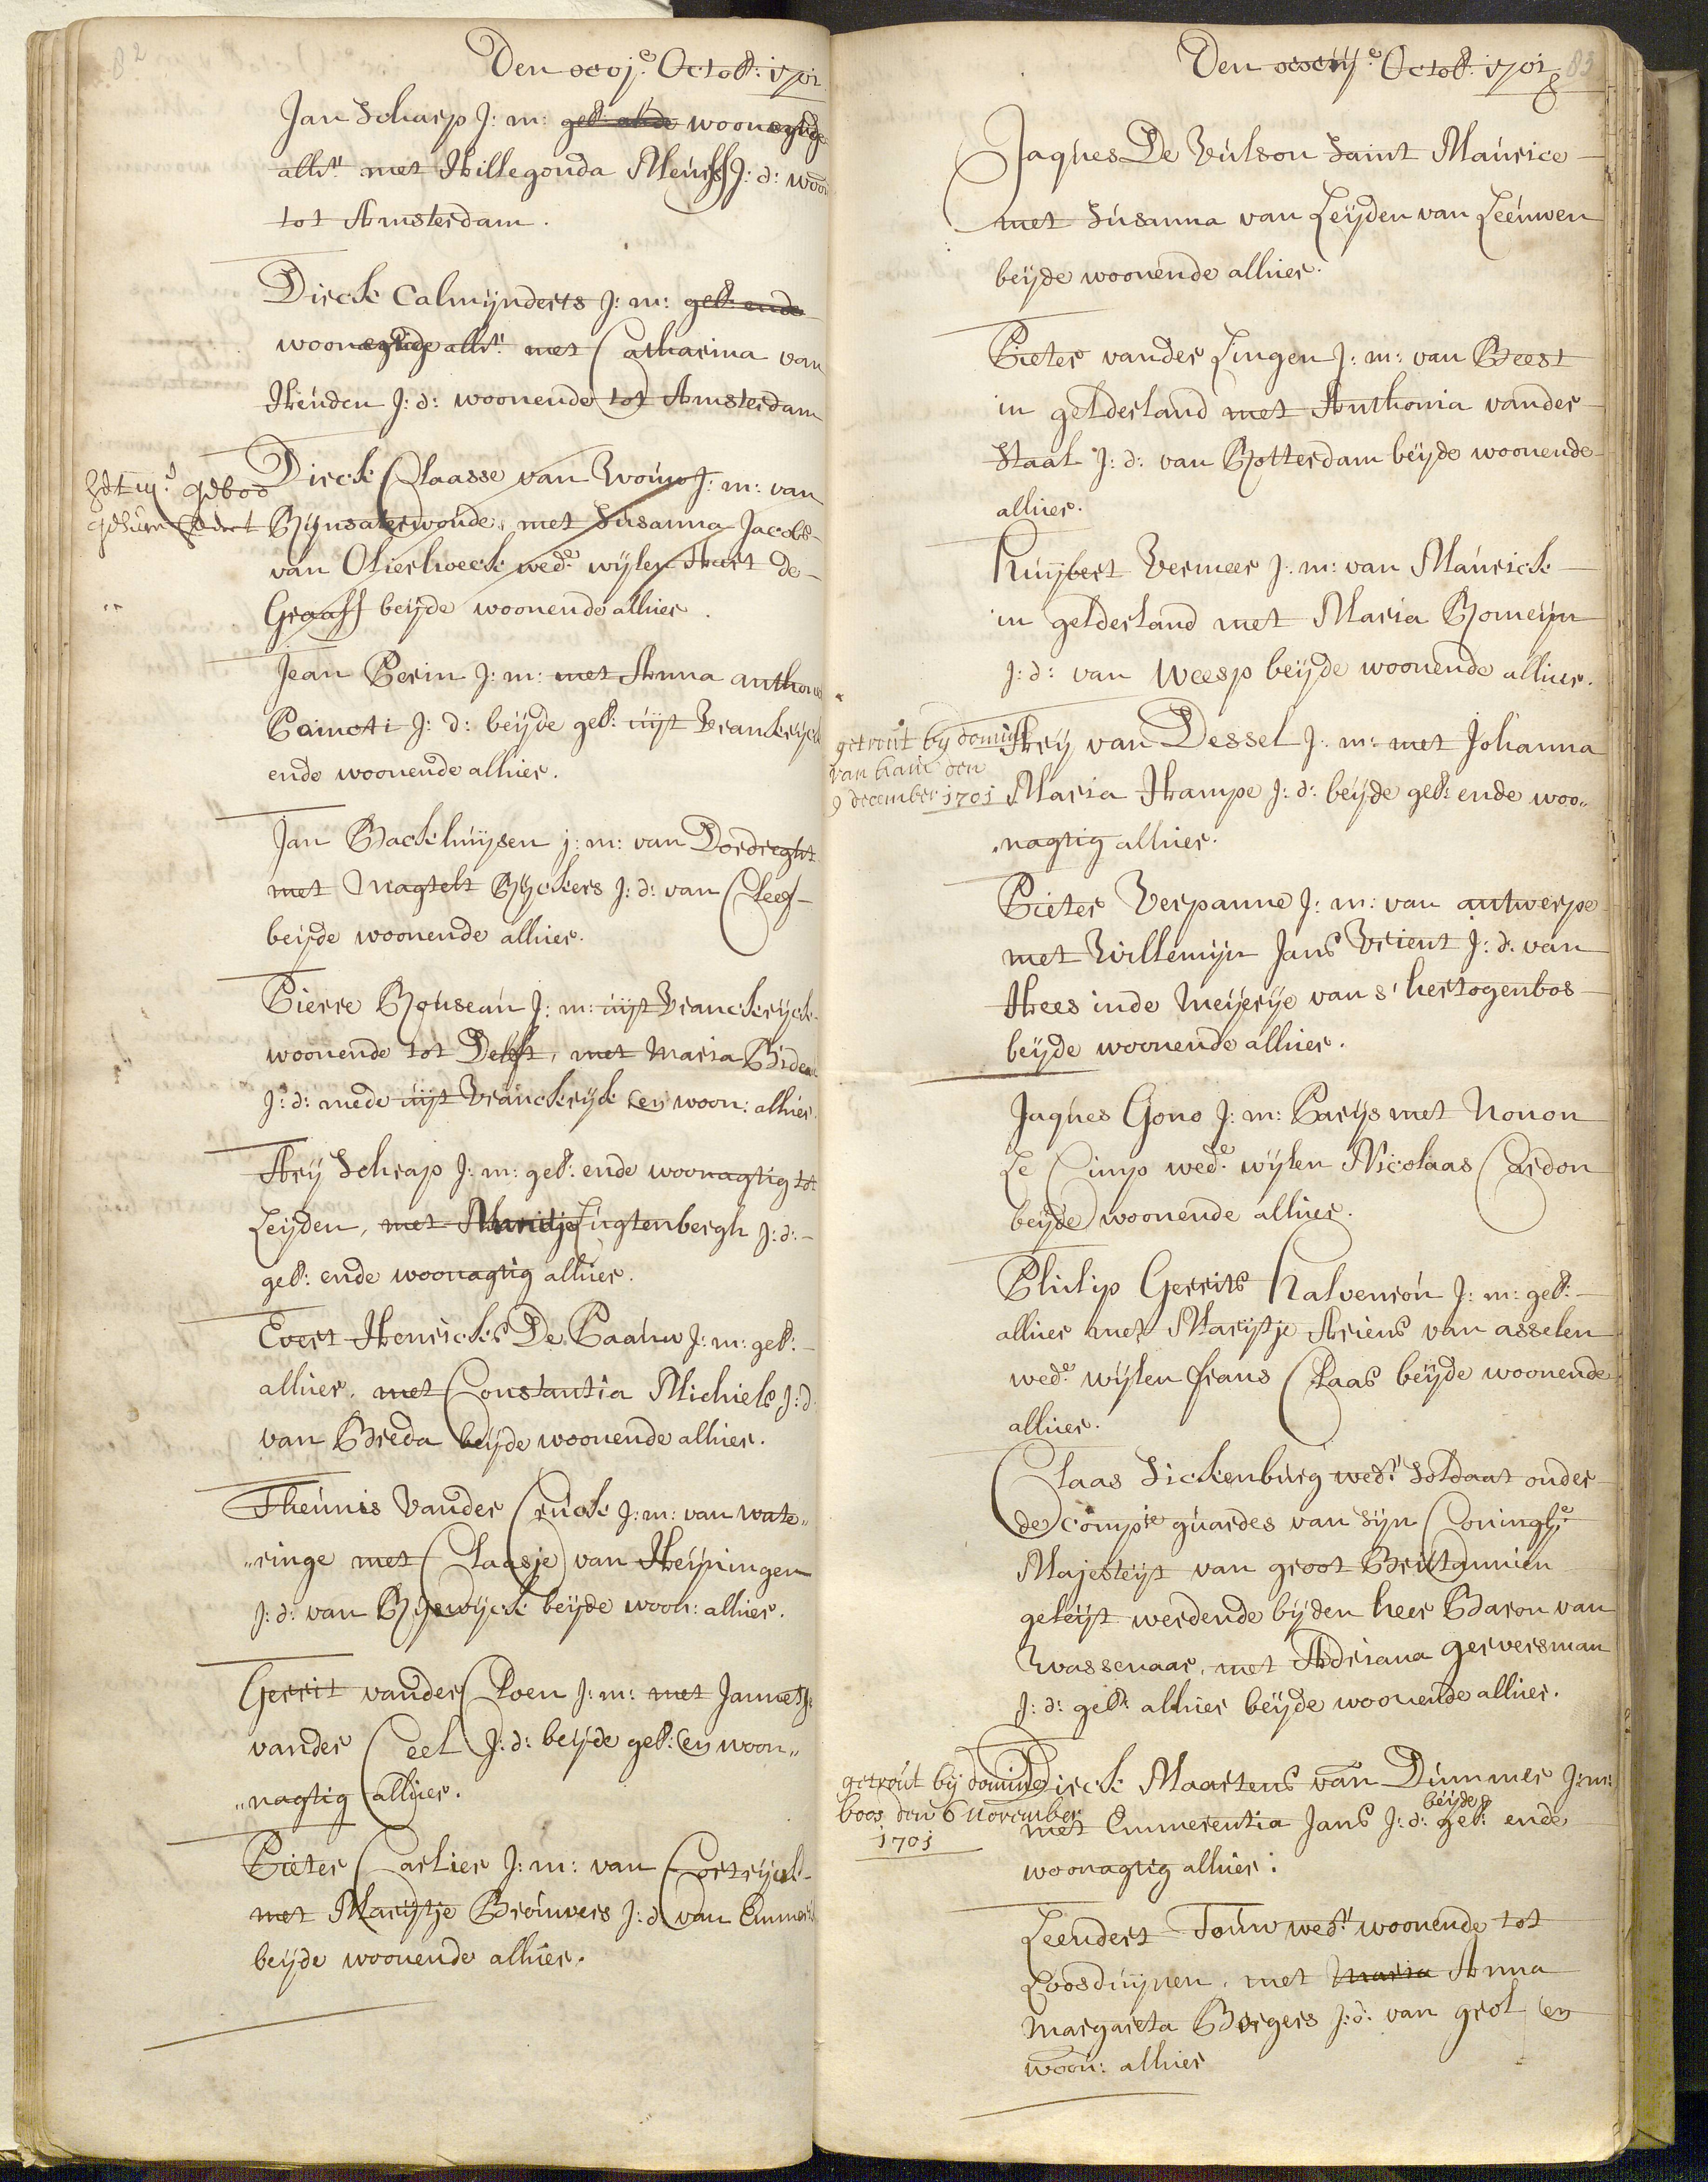 82
Den xvj.e Octob: 1701
Jan Scharp J: m: geb: ende woonagtig
alhr. met Hillegonda Meurss J: d: woon
tot Amsterdam.
Dirck Calmijnderts J: m: geb: ende
woonagtig alhr. met Catharina van
Heuden J: d: woonende tot Amsterdam
Dirck Claasse van J: m: van
gebod
Rijnsaterwoude, met Susanna Jacobs
van Olierhoeck wede. wijlen Aart de
Graaff beijde woonende alhier.
Jean Perin J: m: met Anna anthon
J: d: beijde geb: uijt Vrankrijck
ende woonende alhier.
Jan Backhuijsen j: m: van Dordreght
met Magtelt Rijckers J: d: van Cleef
beijde woonende alhier.
Pierre Rouseau J: m: uijt Vranckrijck
woonende tot Delft, met Maria Bideau
J: d: mede uijt Vranckrijk en woon: alhier.
Arij Schrap J: m: geb: ende woonagtig tot
Leijden, met Maritje Lugtenbergh J: d:
geb: ende woonagtig alhier.
Evert Henricks De Paauw J: m: geb:
alhier. met Constantia Michiels J: d
van Breda beijde woonende alhier.
Theunis vander Cruck J: m: van wate„
„ringe met Claasje van Heijningen
J: d: van Rijswijck beijde woon: alhier.
Gerrit vander Cloen J: m: met Jannetje
vander Ceel J: d: beijde geb: en woon„
„nagtig alhier.
Pieter Carlier J: m: van Cortrijck
met Marijtje Brouwers J: d van Emmerik
beijde woonende alhier.
83
Den xxiij.e Octob: 1701
Jaques De Vulson Saint Maurice
met Susanna van Leijden van Leeuwen
beijde woonende alhier.
Pieter vander Lingen J: m: van Beest
in gelderland met Anthonia vander
Staal J: d: van Rotterdam beijde woonende
alhier.
Huijbert Vermeer J: m: van Maurick
in gelderland met Maria Romeijn
J: d: van Weesp beijde woonende alhier.
getrout bij domine
van den
9 december 1701
Arij van Dessel J: m: met Johanna
Maria Hampe J: d: beijde geb: ende woo„
„nagtig alhier.
Pieter Verpanne J: m: van antwerpe
met Willemijn Jans Vrient J: d: van
Hees inde Meijerije van s'hertogenbos
beijde woonende alhier.
Jaques Gono J: m: Parijs met Nonon
Le Cimp wede. wijlen Nicolaas Cardon
beijde woonende alhier.
Philip Gerrits Halvenrou J: m: geb:
alhier met Marijtje Ariens van asselen
wede. wijlen frans Claas beijde woonende
alhier.
Claas Sickenburg wedr. Soldaat onder
de compie guardes van sijn Coninglje.
Majesteijt van groot Brittannien
geleijt werdende bij den heer Baron van
Wassenaar, met Adriana gerversman
J: d: geb: alhier beijde woonende alhier.
getrout bij domine
boos den 6 november
1701
Dirck Maartens van Dimmer J: m:
met Emmerentia Jans J: d: beijde geb: ende
woonagtig alhier:
Leendert Touw wedr. woonende tot
Loosduijnen, met Maria Anna
Margareta Borgers J: d: van grol en
woon: alhier